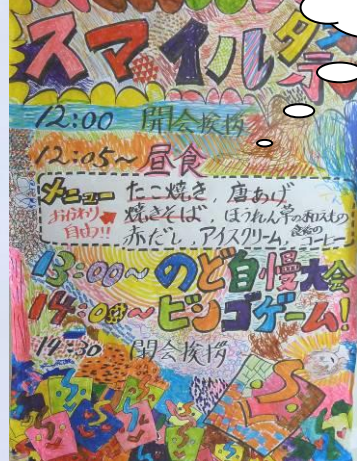 スマイル祭
12:00 開会挨拶
12:05～昼食
メニュー たこ焼き、唐あげ
おかわり 焼きそば、ほうれん草のおひたし
自由!! 赤だし、アイスクリーム、食後のコーヒー
13:00～のど自慢大会
14:00～ビンゴゲーム!
14:30 閉会挨拶